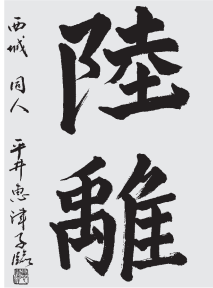 陸離
西城 同人 平井恵津子臨